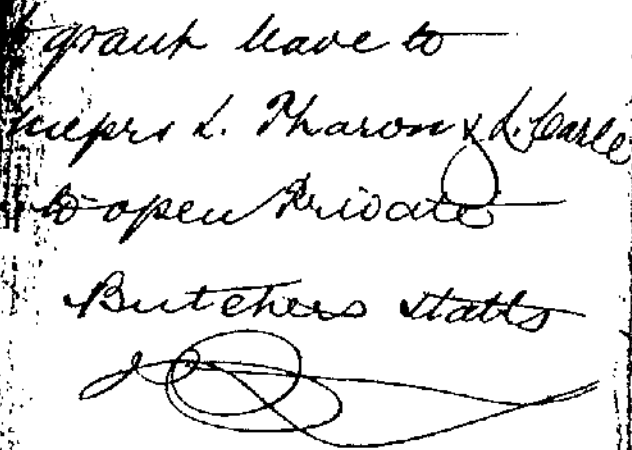 grant leave to
Messrs L. Pharon & L. Carle
to open Private
Butchers stalls